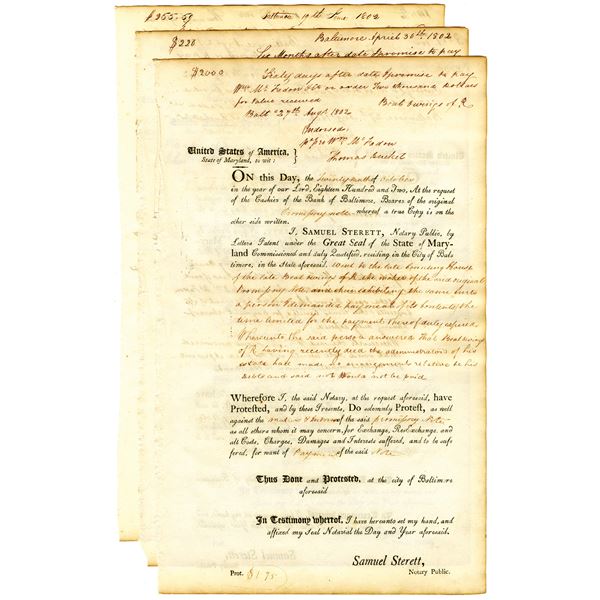 $355.59 Baltimore 19th June 1802
$220 Baltimore April 30th 1802
Six Months after date I promise to pay
$2000 Sixty days after date I promise to pay
Wm McFadon & Co or order Two thousand Dollars
for Value received Beal Owings of R
Balt 27th Augt 1802
Endorsed
Wm McFadon
United States of America,
State of Maryland, to wit: }
ON this Day, the twenty ninth of October
in the year of our Lord, Eighteen Hundred and Two, At the request
of the Cashier of the Bank of Baltimore, Bearer of the original
Promissory note whereof a true Copy is on the
other side written.
I, SAMUEL STERETT, Notary Public, by
Letters Patent under the Great Seal of the State of Mary-
land Commissioned and duly Qualified, residing in the City of Bal-
timore, in the State aforesaid, went to the late Counting House
of the late Beal Owings of R the maker of the said original
Promissory Note, and there exhibiting the same unto
a person I demanded payment of its contents the
time limited for the payment thereof duly expired
Whereunto the said person answered that Beal Owings
of R having recently died the administrators of his
estate had made no arrangements relative to his
debts and said Note would not be paid
Wherefore I, the said Notary, at the request aforesaid, have
Protested, and by these Presents, Do solemnly Protest, as well
against the maker & Endorsers of the said promissory Note
as all others whom it may concern, for Exchange, Re-Exchange and
all Costs, Charges, Damages and Interests suffered, and to be suf-
fered, for want of Payment of the said Note
Thus Done and Protested, at the city of Baltimore
aforesaid
In Testimony whereof, I have hereunto set my hand, and
affixed my Seal Notarial the Day and Year aforesaid.
Samuel Sterett,
Prot. $1.75 Notary Public.